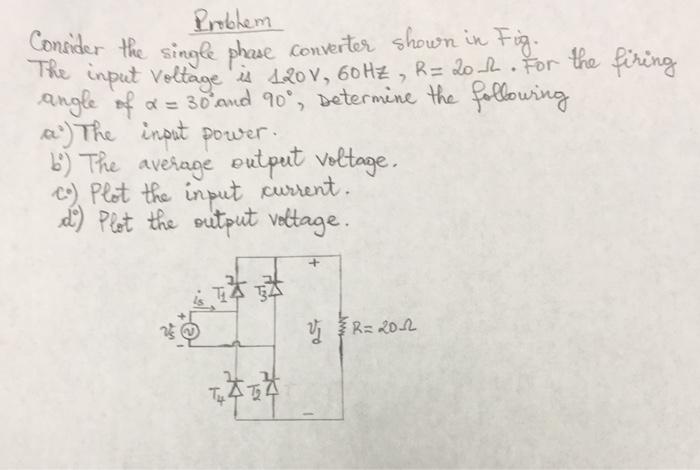 Problem
Consider the single phase converter shown in Fig.
The input voltage is 120V, 60HZ, R= 20Ω. For the firing
angle of α = 30° and 90°, Determine the following
a°) The input power.
b°) The average output voltage.
c°) Plot the input current.
d°) Plot the output voltage.
+
is T1 T3
+
vs vd R= 20Ω
-
T4 T2
-